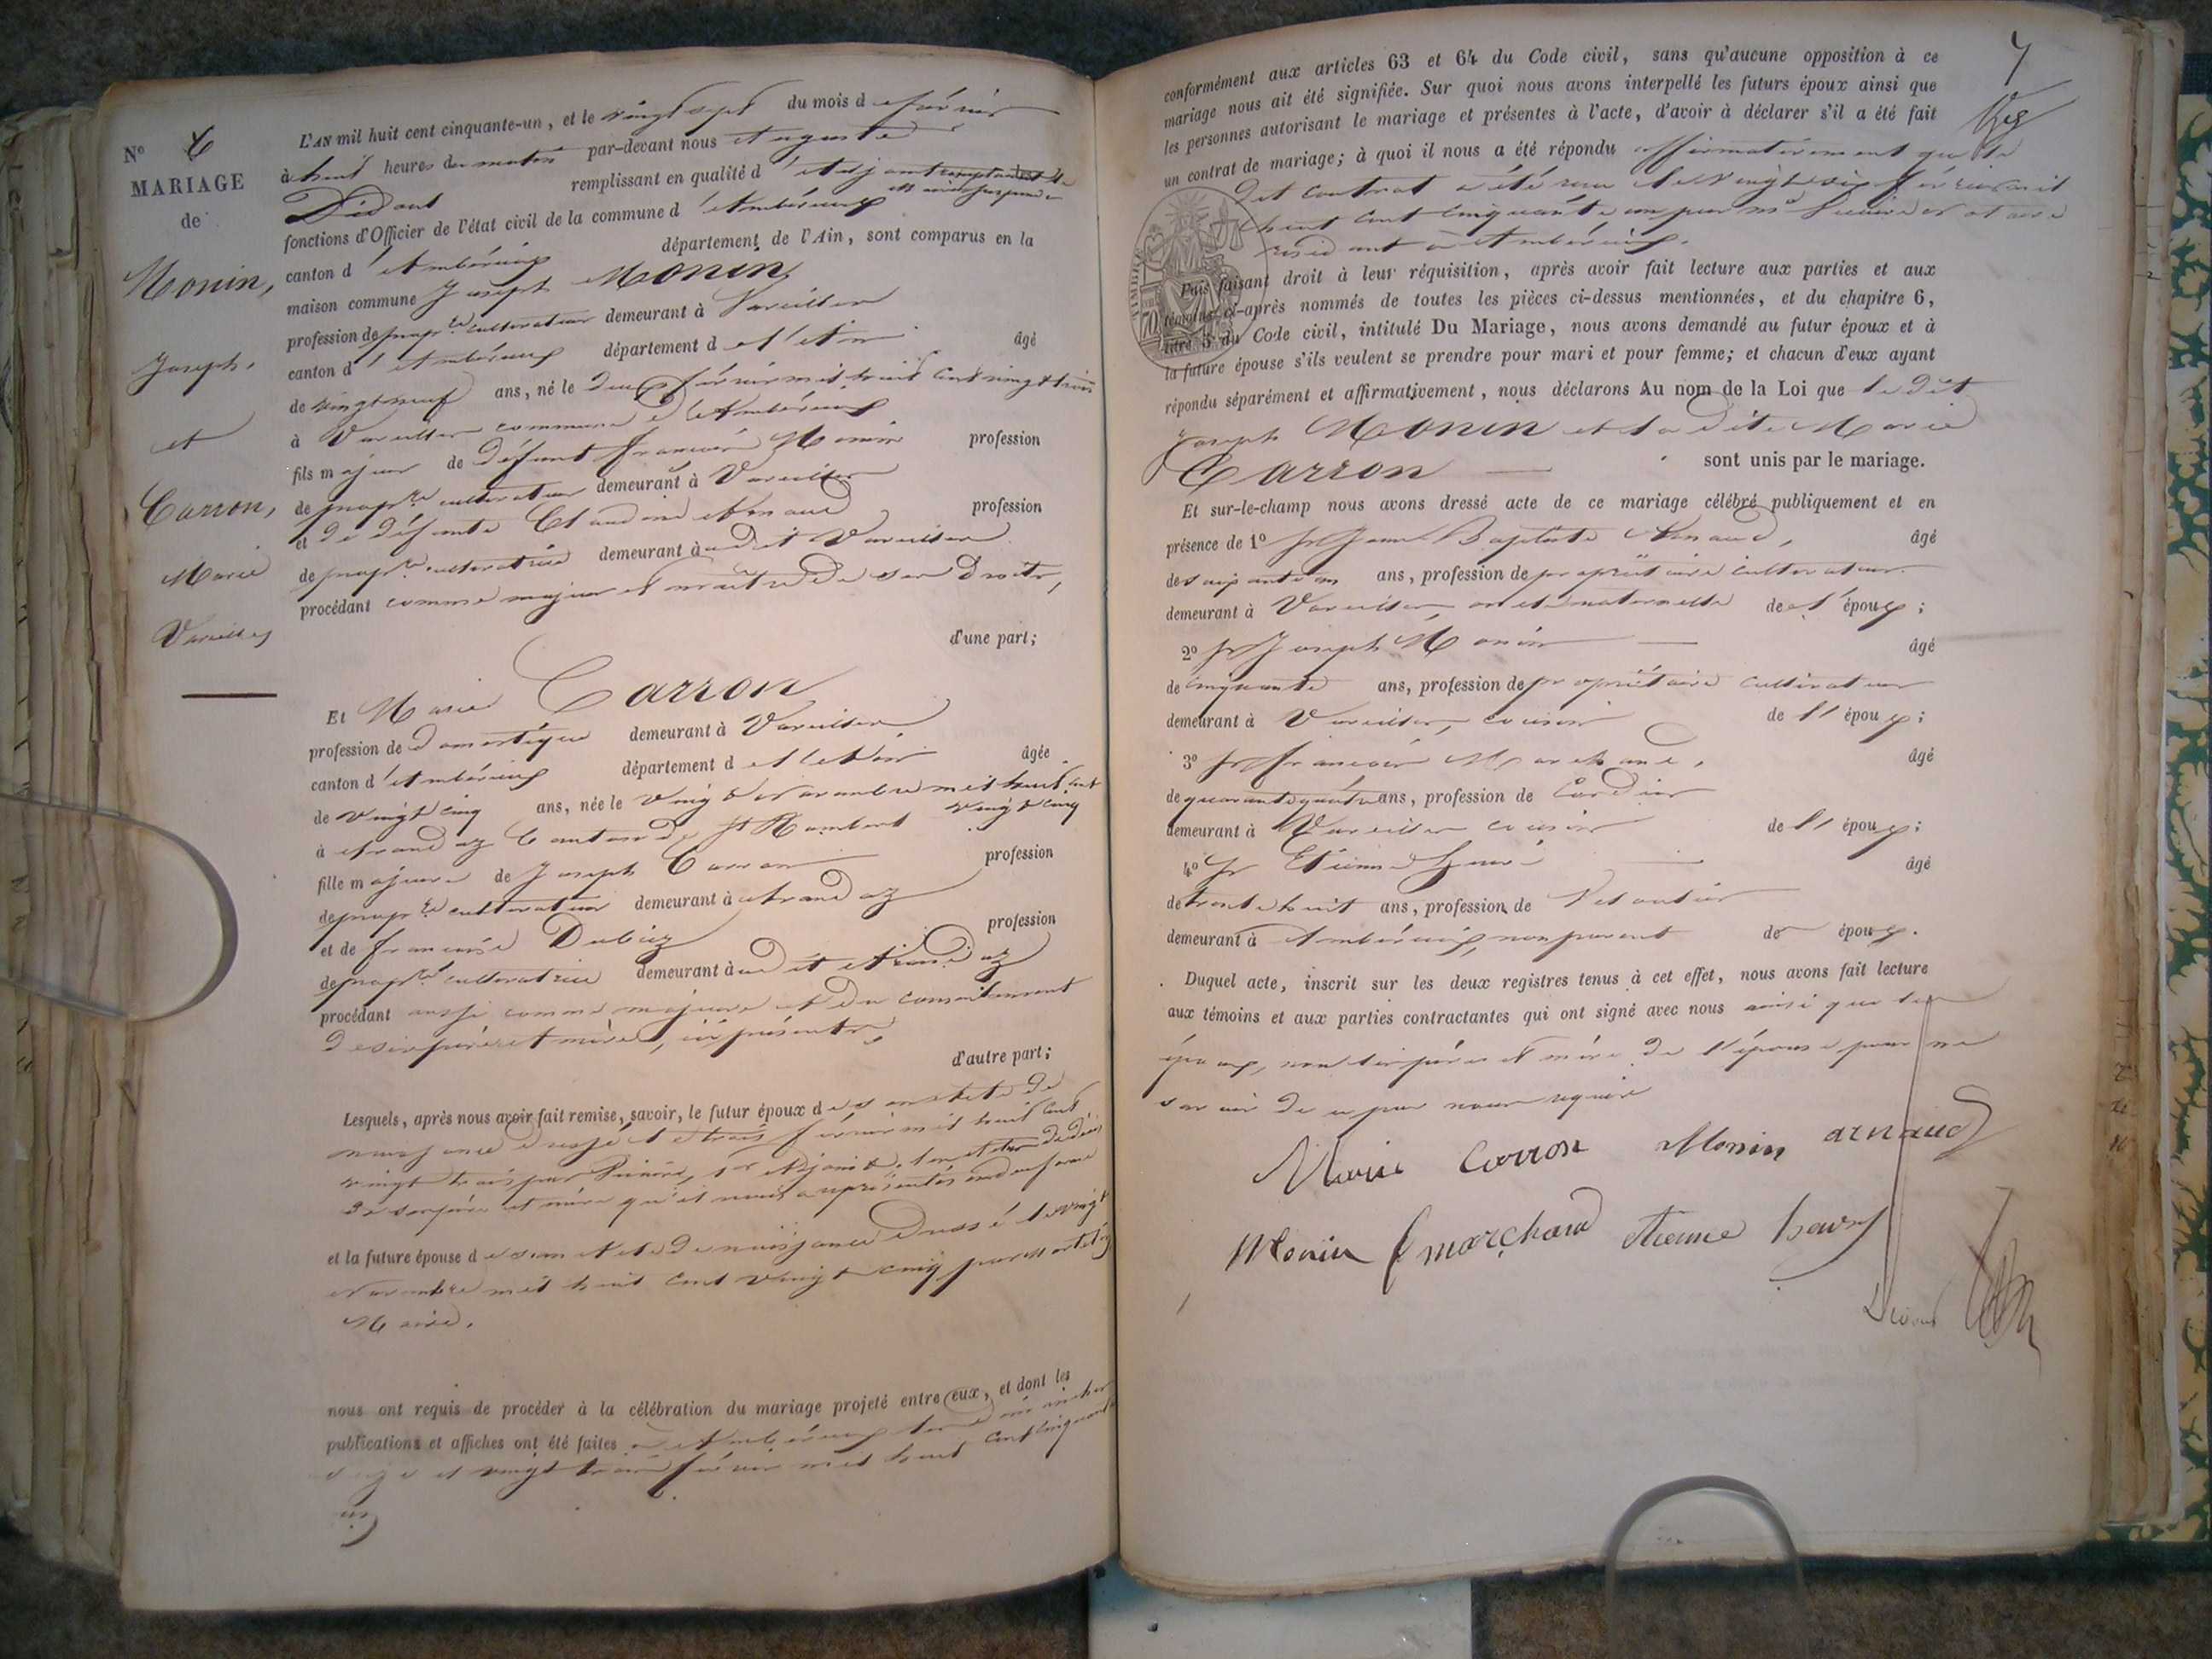 N° 6
MARIAGE
de
Monin,
Joseph,
et
Carron,
Marie
Vareilles
L'AN mil huit cent cinquante-un, et le vingt sept du mois de février
à huit heures du matin par-devant nous Auguste
Didout remplissant en qualité d'adjoint
fonctions d'Officier de l'état civil de la commune d'Ambérieux
canton d'Ambérieux département de l'Ain, sont comparus en la
maison commune Joseph Monin,
profession de propre cultivateur demeurant à Vareilles
canton d'Ambérieux département de l'Ain âgé
de vingt neuf ans, né le deux février mil huit cent vingt trois
à Vareilles commune d'Ambérieux
fils majeur de défunt François Monin profession
de propre cultivateur demeurant à Vareilles
et de défunte Claudine Arnaud profession
de propre cultivatrice demeurant audit Vareilles
procédant comme majeur et maître de ses droits,
d'une part;
Et Marie Carron
profession de domestique demeurant à Vareilles
canton d'Ambérieux département de l'Ain âgée
de vingt cinq ans, née le vingt novembre mil huit cent
vingt cinq
à Arandaz Canton de St Rambert
fille majeure de Joseph Carron profession
de propre cultivateur demeurant à Arandaz
et de françoise Dubiez profession
de propre cultivatrice demeurant audit Arandaz
procédant aussi comme majeure et du consentement
de ses père et mère, ici présents,
d'autre part;
Lesquels, après nous avoir fait remise, savoir, le futur époux de son acte de
naissance dressé le trois février mil huit cent
vingt trois par adjoint, les actes de décès
de ses père et mère qu'il nous a représentés en due forme
et la future épouse de son acte de naissance dressé le vingt
Novembre mil huit cent vingt cinq par
Maire.
nous ont requis de procéder à la célébration du mariage projeté entre eux, et dont les
publications et affiches ont été faites à Ambérieux les dimanches
seize et vingt trois février mil huit cent cinquante
un
7
conformément aux articles 63 et 64 du Code civil, sans qu'aucune opposition à ce
mariage nous ait été signifiée. Sur quoi nous avons interpellé les futurs époux ainsi que
les personnes autorisant le mariage et présentes à l'acte, d'avoir à déclarer s'il a été fait
un contrat de mariage; à quoi il nous a été répondu affirmativement que le
dit contrat a été reçu le vingt six février mil
huit cent cinquante un par me notaire
résidant à Ambérieux.
TIMBRE
70
Puis faisant droit à leur réquisition, après avoir fait lecture aux parties et aux
témoins ci-après nommés de toutes les pièces ci-dessus mentionnées, et du chapitre 6,
titre 5 du Code civil, intitulé Du Mariage, nous avons demandé au futur époux et à
la future épouse s'ils veulent se prendre pour mari et pour femme; et chacun d'eux ayant
répondu séparément et affirmativement, nous déclarons Au nom de la Loi que le dit
Joseph Monin et la dite Marie
Carron sont unis par le mariage.
Et sur-le-champ nous avons dressé acte de ce mariage célébré publiquement et en
présence de 1° Sr Jean Baptiste Arnaud, âgé
de soixante un ans, profession de propriétaire cultivateur
demeurant à Vareilles oncle maternelle de l'époux;
2° Sr Joseph Monin âgé
de cinquante ans, profession de propriétaire cultivateur
demeurant à Vareilles, cousin de l'époux;
3° Sr François Marchand, âgé
de quarante quatre ans, profession de Cordier
demeurant à Vareilles cousin de l'époux;
4° Sr Etienne âgé
de trente huit ans, profession de
demeurant à Ambérieux, non parent de époux.
Duquel acte, inscrit sur les deux registres tenus à cet effet, nous avons fait lecture
aux témoins et aux parties contractantes qui ont signé avec nous ainsi que les
époux, non les père et mère de l'épouse pour ne
savoir de ce par nous requis
Marie Carron Monin arnaud
Monin f marchand etienne
Didout